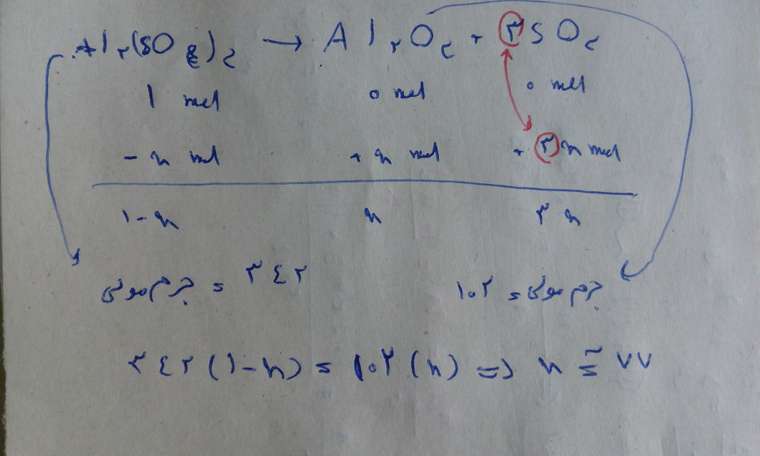 Al۲(SO٤)۳ → Al۲O۳ + ۳SO۳
1 mol 0 mol 0 mol
- n mol + n mol + ۳n mol
1-n n ۳n
جرم مولی = ۳٤۲ جرم مولی = ۱۰۲
۳٤۲(1-n) = ۱۰۲(n) => n ≅ ۷۷